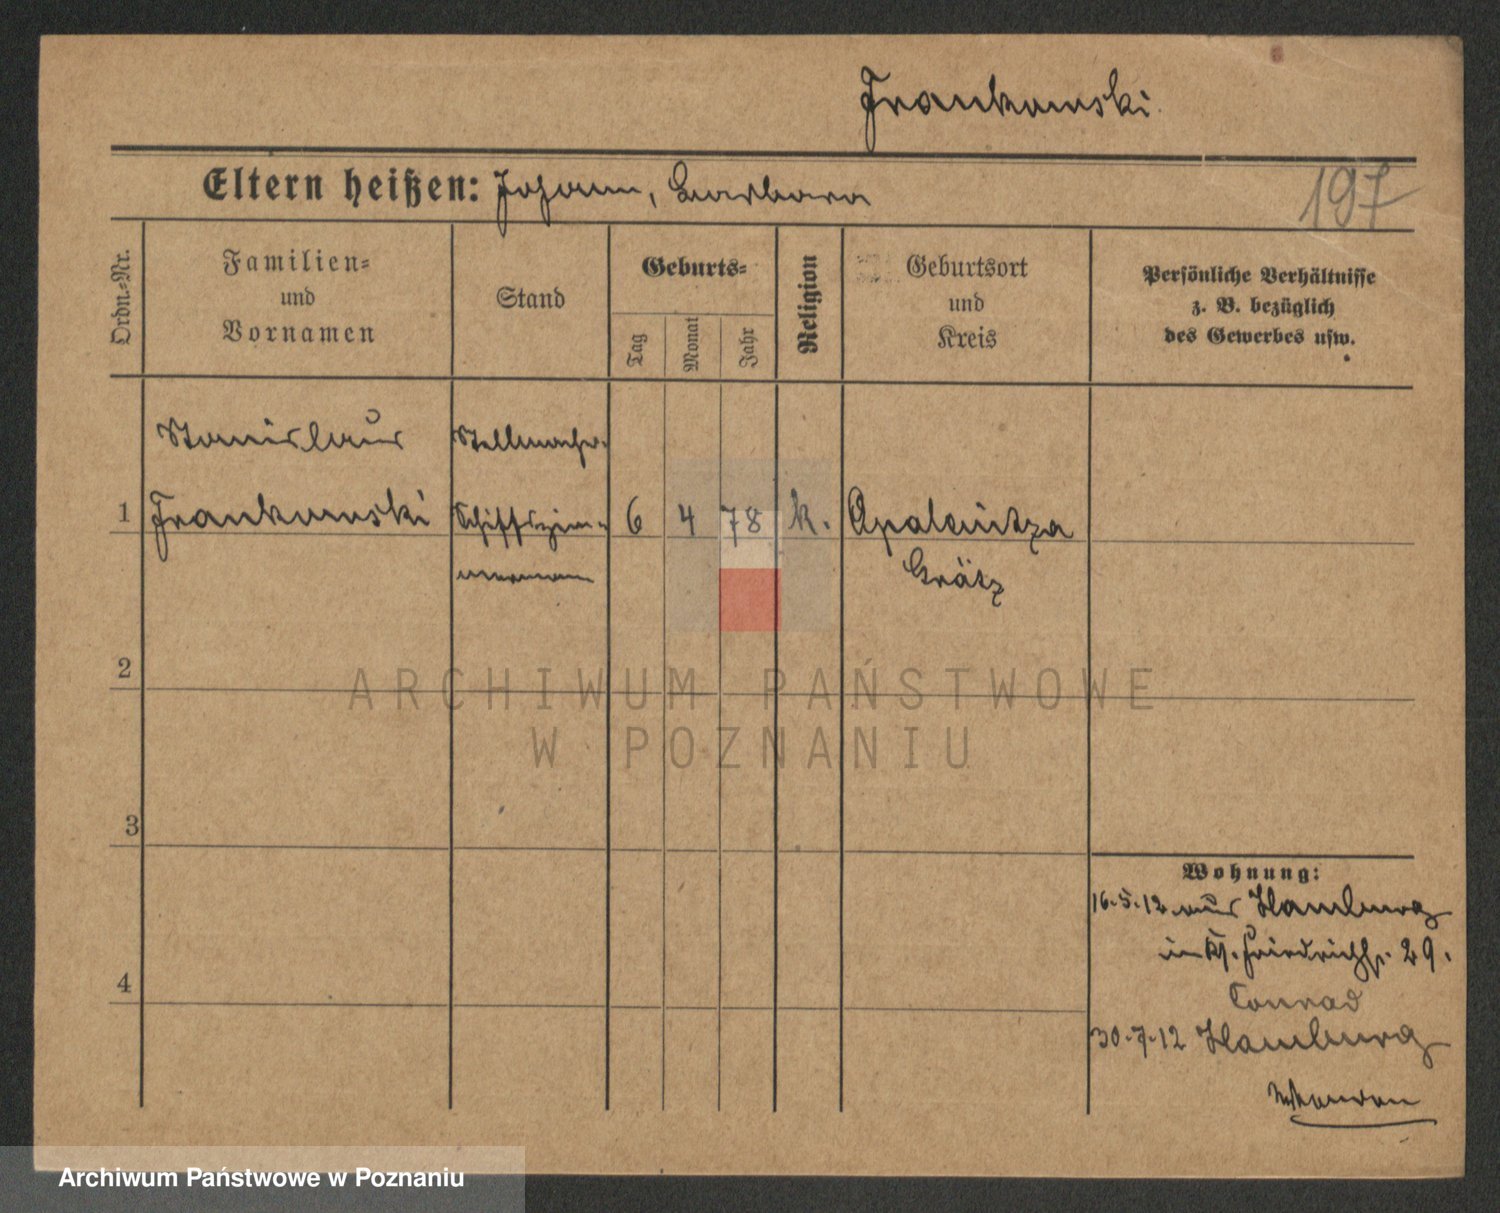 Frankowski
Eltern heißen: Johann, Barbara
197
Ordn.-Nr.
Familien-
und
Vornamen
Stand
Geburts-
Tag
Monat
Jahr
Religion
Geburtsort
und
Kreis
Persönliche Verhältnisse
z. B. bezüglich
des Gewerbes usw.
Stanislaus
Stellmacher
1 Frankowski Schiffszim- 6 4 78 k. Opalenitza
mermann
Grätz
2
3
4
Wohnung:
16.5.12 aus Hamburg
29.
Conrad
30.7.12 Hamburg
ARCHIWUM PAŃSTWOWE
W POZNANIU
Archiwum Państwowe w Poznaniu